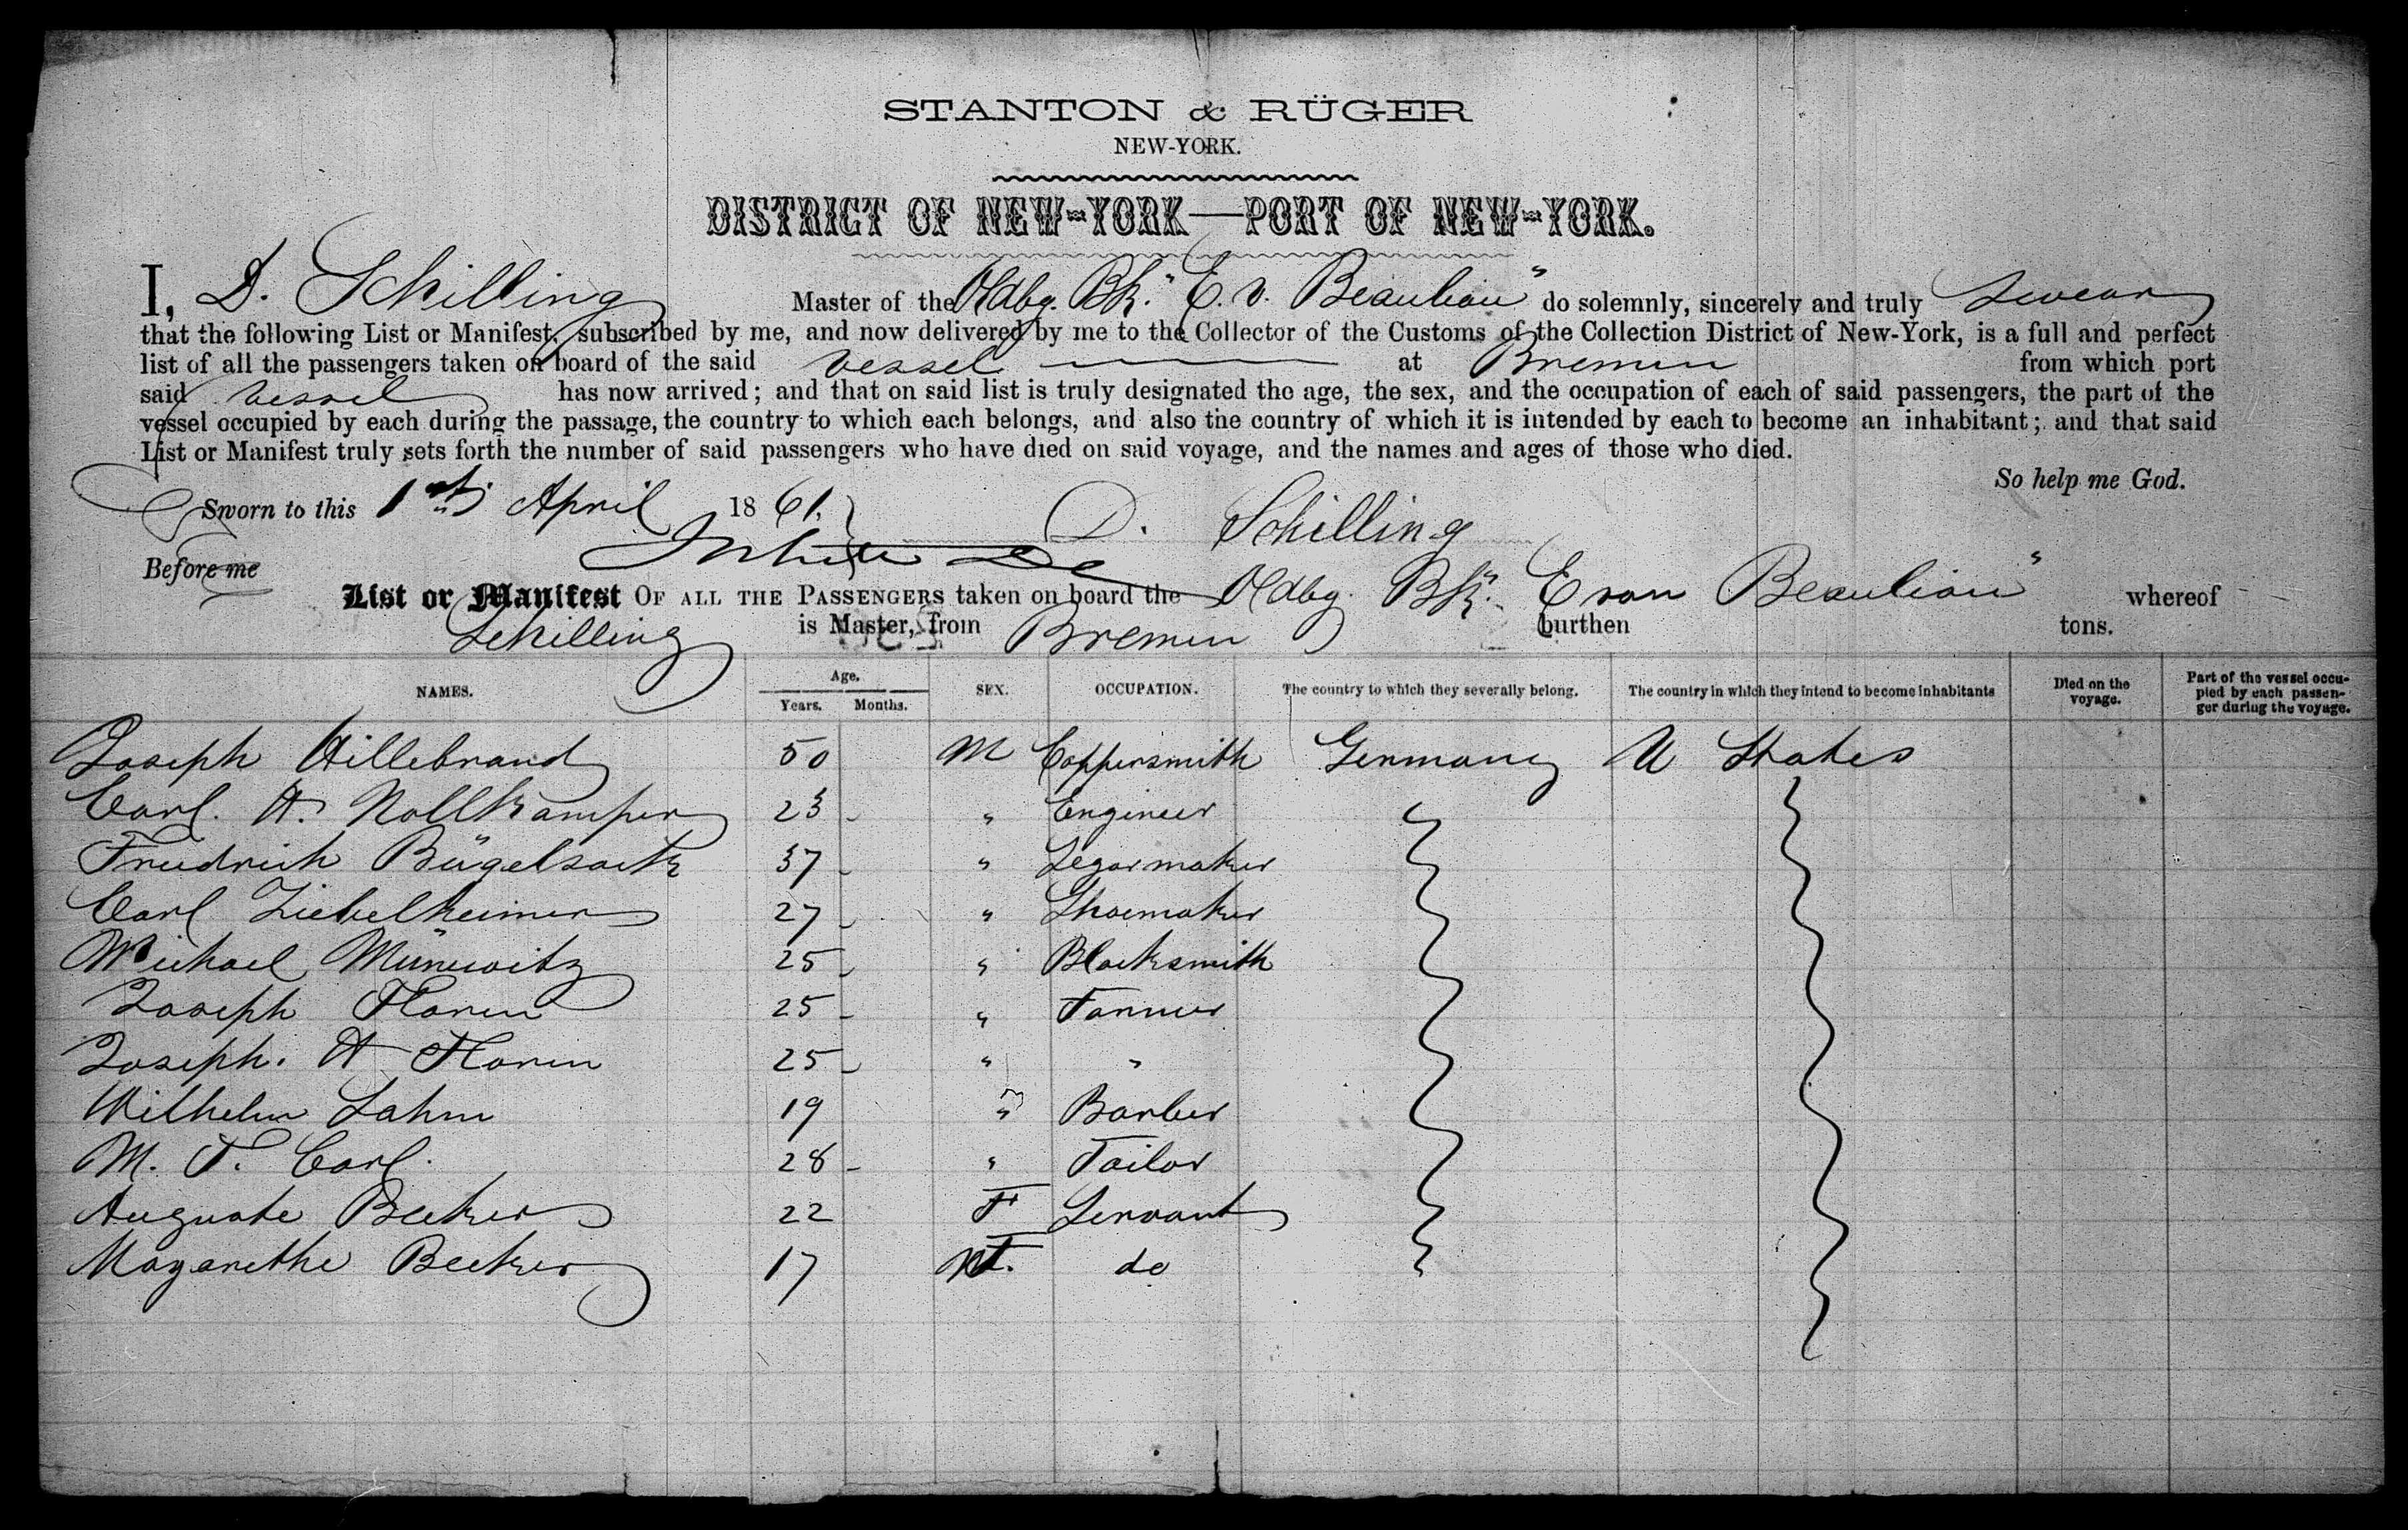 STANTON & RÜGER
NEW-YORK.
DISTRICT OF NEW-YORK—PORT OF NEW-YORK.
I, D. Schilling Master of the Oldbg. Bk. "E. v. Beaulieu" do solemnly, sincerely and truly swear
that the following List or Manifest, subscribed by me, and now delivered by me to the Collector of the Customs of the Collection District of New-York, is a full and perfect
list of all the passengers taken on board of the said vessel at Bremen from which port
said vessel has now arrived; and that on said list is truly designated the age, the sex, and the occupation of each of said passengers, the part of the
vessel occupied by each during the passage, the country to which each belongs, and also the country of which it is intended by each to become an inhabitant; and that said
List or Manifest truly sets forth the number of said passengers who have died on said voyage, and the names and ages of those who died.
So help me God.
Sworn to this 1st April 1861. D. Schilling
Before me
List or Manifest OF ALL THE PASSENGERS taken on board the Oldbg. Bk. "E von Beaulieu" whereof
Schilling is Master, from Bremen burthen tons.
NAMES. Age. Years. Months. SEX. OCCUPATION. The country to which they severally belong. The country in which they intend to become inhabitants Died on the voyage. Part of the vessel occupied by each passenger during the voyage.
Joseph Hillebrand 50 M Coppersmith Germany U States
Carl. H. Nollkamper 23 " Engineer
Friedrich Bügelsack 37 " Segarmaker
Carl Ziebelheimer 27 " Shoemaker
Michael Münewitz 25 " Blacksmith
Joseph Floren 25 " Farmer
Joseph. H Floren 25 " "
Wilhelm Lahm 19 " Barber
M. F. Carl. 28 " Tailor
Auguste Becker 22 F Servant
Magarethe Becker 17 F. do